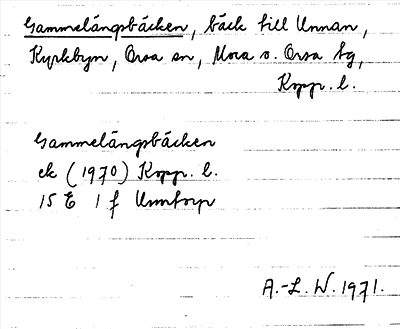 Gammelängsbäcken, bäck till Unnan,
Kyrkbyn, Orsa sn, Mora o. Orsa tg,
Kopp. l.
Gammelängsbäcken
ek (1970) Kopp. l.
15 E 1 f Unntorp
A.-L. W. 1971.